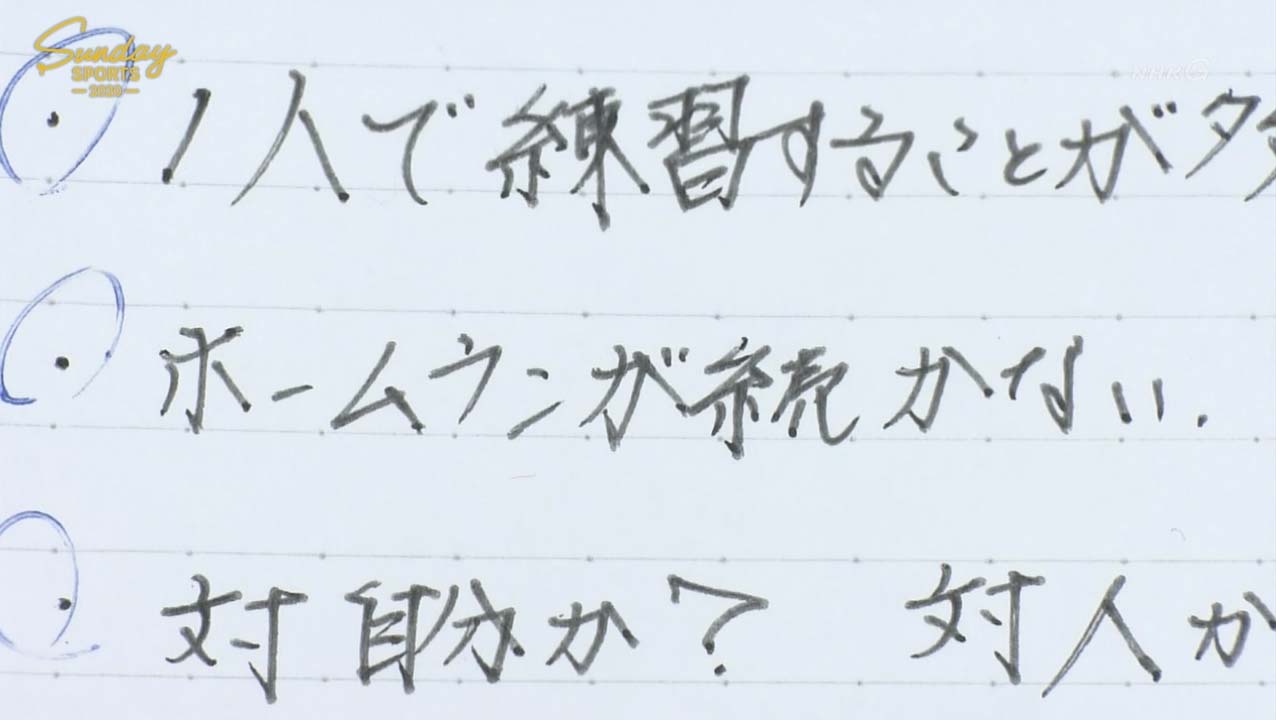 Sunday
SPORTS
2020
NHK G
・1人で練習することが多
・ホームランが続かない.
・対自分か? 対人か